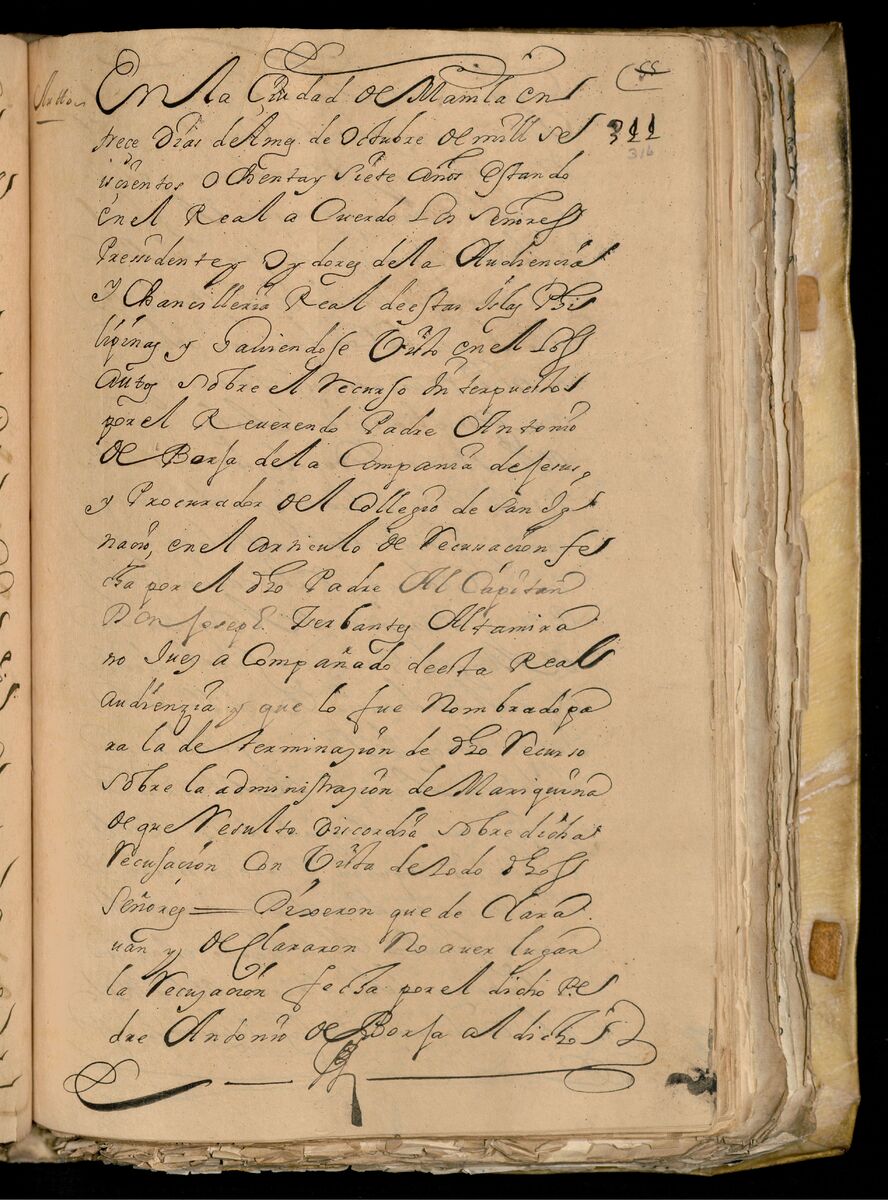 Autto
55
En la Ciudad de Manila en
trece Dias del mes de Octubre de mill seis
311
316
iscientos ochenta y siete años Estando
en el Real acuerdo Los señores
Presidente y oydores de la Audiencia
y Chancilleria Real de estas Yslas Phi
lipinas y haviendose Visto en el Los
autos sobre el recurso Ynterpuesto
por el Reverendo Padre Antonio
de Borja de la Compania de Jesus,
y Procurador del Collegio de San Yg
nacio, en el articulo de recusacion fe
cha por el dho Padre Al Capitan
Don Joseph Zerbantes Altamira
no Juez acompañado de esta Real
audienzia y que lo fue nombrado pa
ra la determinazion de dho recurso
sobre la administrazion de Mariquina
de que resulto Discordia sobre dicha
recusacion Con Vista de todo dhos
señores = Dixeron que declara
uan y declararon No auer lugar
la recusacion fecha por el dicho Pa
dre Antonio de Borja al dicho